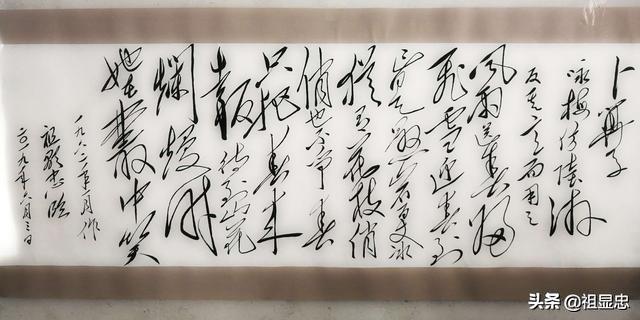 卜算子
咏梅仿陸游
反其意而用之
風雨送春歸
飛雪迎春到
已是懸崖百丈冰
猶有花枝俏
俏也不争春
只把春来
報待到山花
爛漫时
她在叢中笑
一九六二年一月作
祖顯忠臨
二〇一九年六月三日
头条 @祖显忠